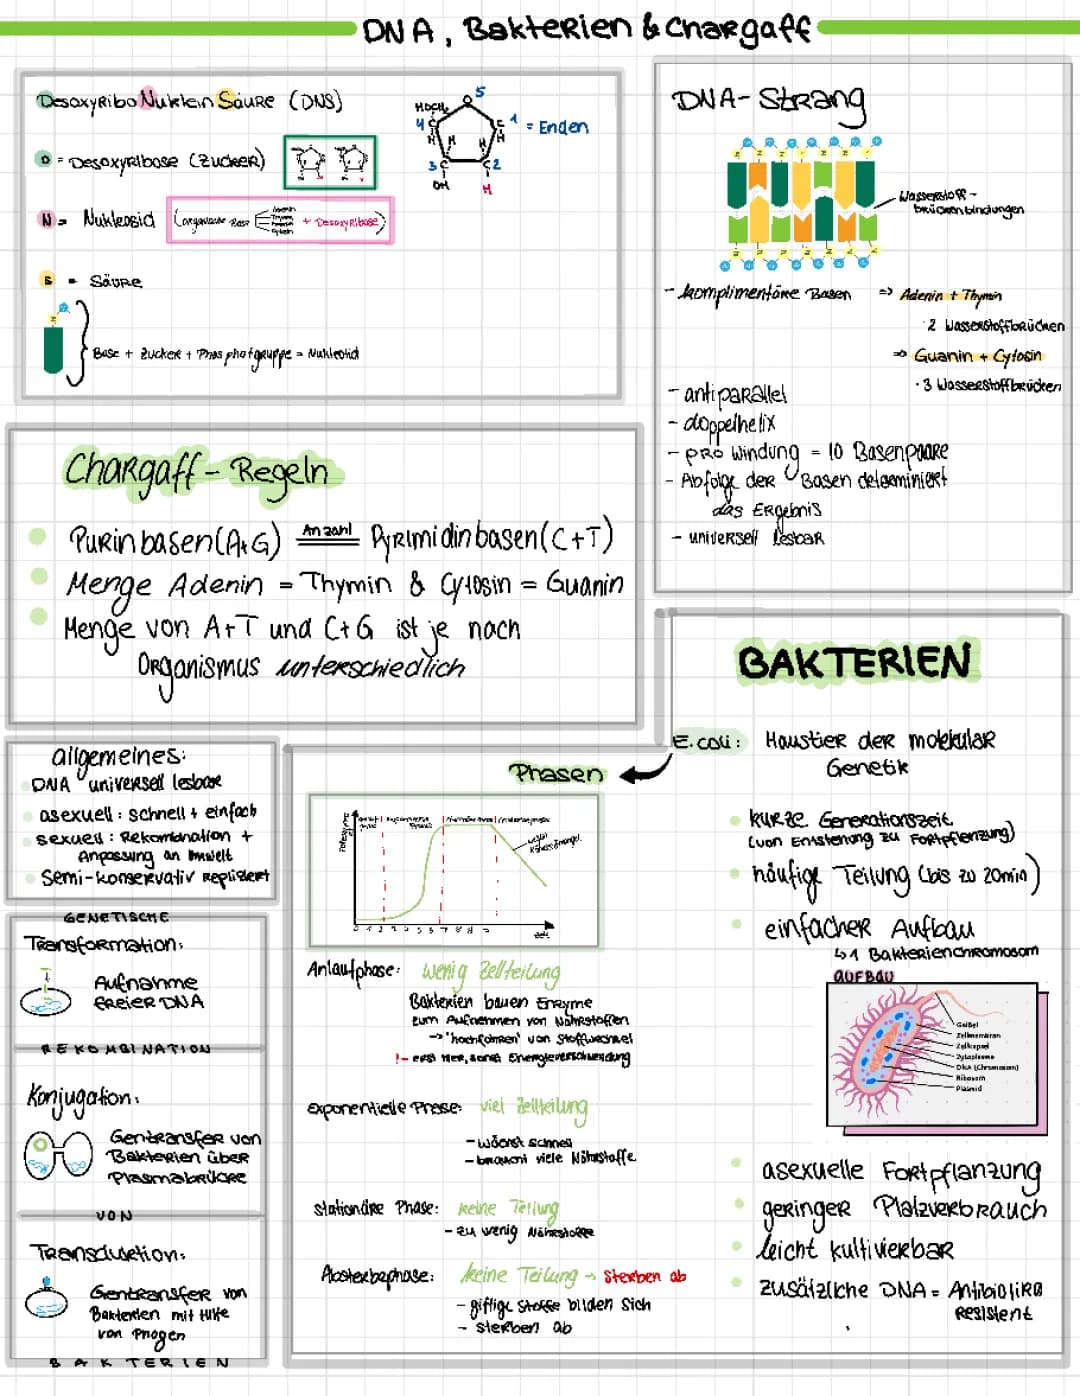 DNA, Bakterien & Chargaff
DesoxyRibo Nuklein Säure (DNS)
D = Desoxyribose (Zucker)
N = Nukleosid (organische Base
Adenin
Thymin
Guanin
Cytosin
+ Desoxyribose)
S = Säure
Base + Zucker + Phosphatgruppe = Nukleotid
HOCH₂
5
4 C
C 1 = Enden
H H H H
3 C
C 2
OH
H
DNA-Strang
Wasserstoff-
brückenbindungen
- komplimentäre Basen => Adenin + Thymin
· 2 Wasserstoffbrücken
=> Guanin + Cytosin
· 3 Wasserstoffbrücken
- antiparallel
- doppelhelix
- pro Windung = 10 Basenpaare
- Abfolge der Basen determiniert
das Ergebnis
- universell lesbar
Chargaff-Regeln
Purinbasen(A+G) Anzahl Pyrimidinbasen(C+T)
Menge Adenin = Thymin & Cytosin = Guanin
Menge von A+T und C+G ist je nach
Organismus unterschiedlich
allgemeines:
DNA universell lesbar
asexuell: schnell + einfach
sexuell: Rekombination +
Anpassung an Umwelt
Semi-konservativ repliziert
GENETISCHE
Transformation:
Aufnahme
freier DNA
REKOMBINATION
Konjugation:
Gentransfer von
Bakterien über
Plasmabrücke
VON
Transduktion:
Gentransfer von
Bakterien mit Hilfe
von Phagen
BAKTERIEN
Phasen
wegen
Nährstoffmangel
Zeit
Anlaufphase: wenig Zellteilung
Bakterien bauen Enzyme
zum Aufnehmen von Nährstoffen
-> "hochfahren" von Stoffwechsel
!- erst hier, sonst Energieverschwendung
exponentielle Phase: viel Zellteilung
- wächst schnell
- braucht viele Nährstoffe
stationäre Phase: keine Teilung
- zu wenig Nährstoffe
Absterbephase: keine Teilung -> sterben ab
- giftige Stoffe bilden sich
- sterben ab
BAKTERIEN
E.coli: Haustier der molekular
Genetik
kurze Generationszeit
(von Entstehung zu Fortpflanzung)
häufige Teilung (bis zu 20min)
einfacher Aufbau
↳ 1 Bakterienchromosom
AUFBAU
Geißel
Zellmembran
Zellkapsel
Zytoplasma
DNA (Chromosom)
Ribosom
Plasmid
asexuelle Fortpflanzung
geringer Platzverbrauch
leicht kultivierbar
zusätzliche DNA = Antibiotika
Resistent